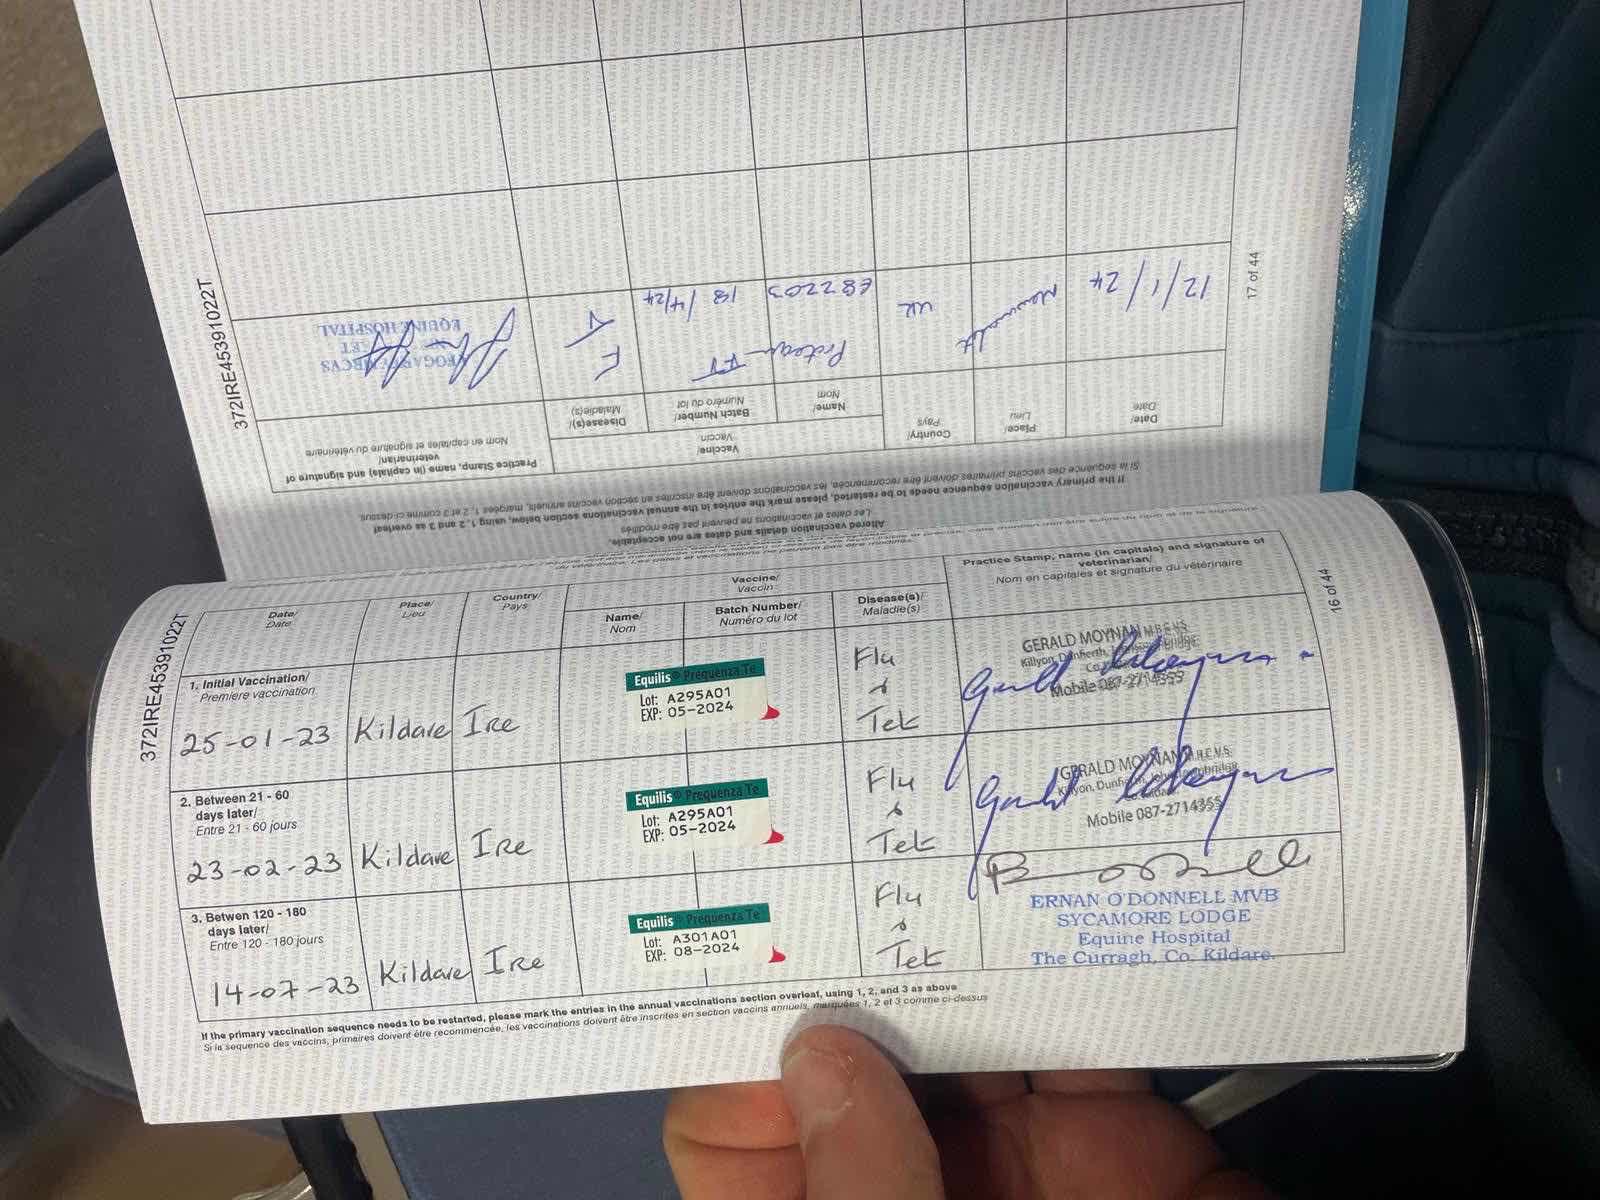 372IRE45391022T
16 of 44
Date/
Date
Place/
Lieu
Country/
Pays
Vaccine/
Vaccin
Name/
Nom
Batch Number/
Numéro du lot
Disease(s)/
Maladie(s)
Practice Stamp, name (in capitals) and signature of
veterinarian/
Nom en capitales et signature du vétérinaire
1. Initial Vaccination/
Première vaccination
25-01-23
Kildare
Ire
Equilis® Prequenza Te
Lot: A295A01
EXP: 05-2024
Flu
&
Tet
GERALD MOYNAN M.R.C.V.S.
Killyon, Dunfierth,
Mobile 087-2714355
2. Between 21 - 60
days later/
Entre 21 - 60 jours
23-02-23
Kildare
Ire
Equilis® Prequenza Te
Lot: A295A01
EXP: 05-2024
Flu
&
Tet
GERALD MOYNAN M.R.C.V.S.
Killyon, Dunfierth, Johnstownbridge,
Co. Kildare
Mobile 087-2714355
3. Betwen 120 - 180
days later/
Entre 120 - 180 jours
14-07-23
Kildare
Ire
Equilis® Prequenza Te
Lot: A301A01
EXP: 08-2024
Flu
&
Tet
ERNAN O'DONNELL MVB
SYCAMORE LODGE
Equine Hospital
The Curragh, Co. Kildare.
If the primary vaccination sequence needs to be restarted, please mark the entries in the annual vaccinations section overleaf, using 1, 2, and 3 as above
Si la sequence des vaccins, primaires doivent être recommencée, les vaccinations doivent être inscrites en section vaccins annuels, marquées 1, 2 et 3 comme ci-dessus
372IRE45391022T
17 of 44
Altered vaccination details and dates are not acceptable.
Les dates et vaccinations ne peuvent pas être modifiés
If the primary vaccination sequence needs to be restarted, please mark the entries in the annual vaccinations section below, using 1, 2 and 3 as overleaf
Si la sequence des vaccins primaires doivent être recommencée, les vaccinations doivent être inscrites en section vaccins annuels, marquées 1, 2 et 3 comme ci-dessus
Date/
Date
Place/
Lieu
Country/
Pays
Vaccine/
Vaccin
Name/
Nom
Batch Number/
Numéro du lot
Disease(s)/
Maladie(s)
Practice Stamp, name (in capitals) and signature of
veterinarian/
Nom en capitales et signature du vétérinaire
12/1/24
Newmarket
UK
Proteq-FT
E82203
18/4/24
F
T
EQUINE HOSPITAL